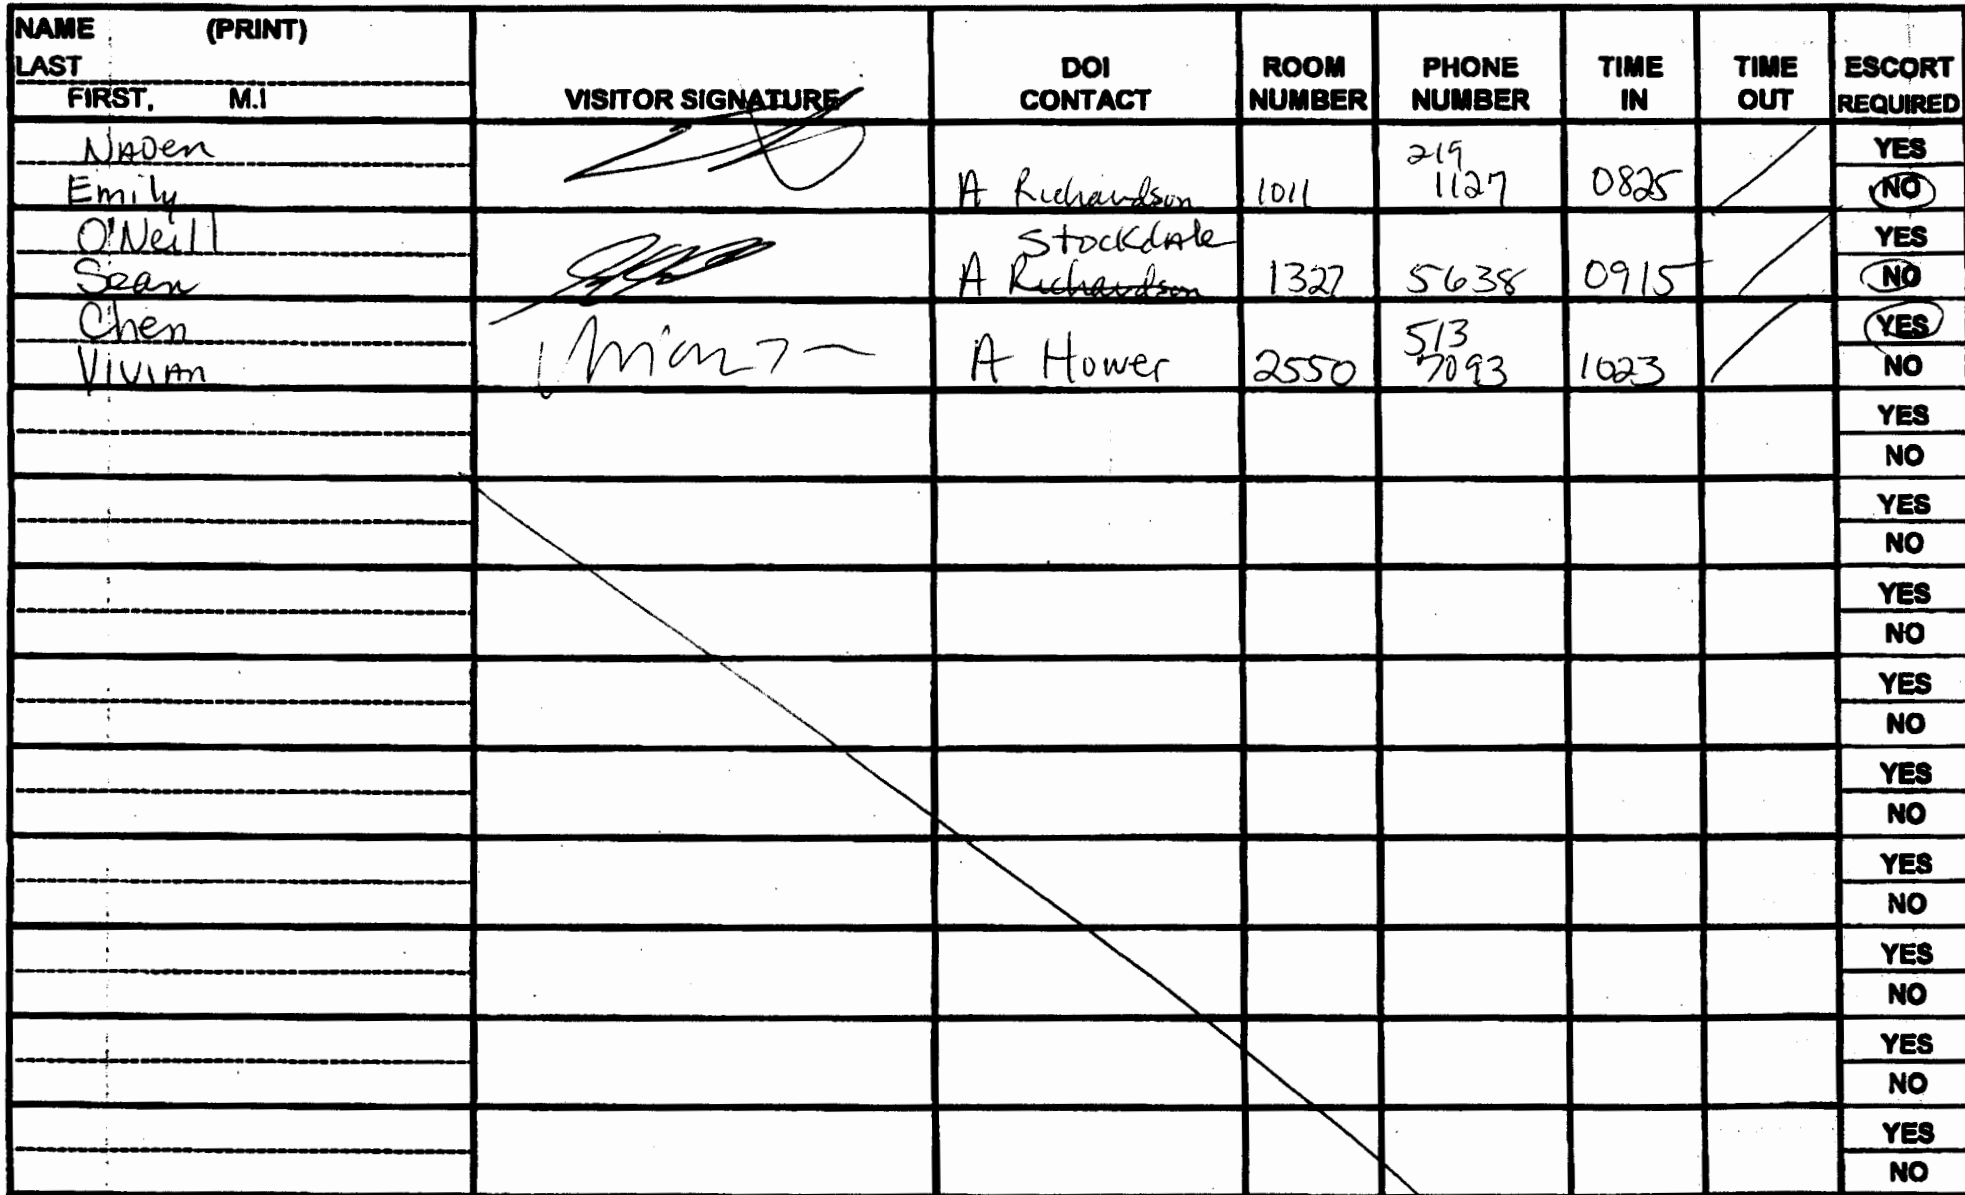 NAME (PRINT)
LAST
FIRST, M.I
VISITOR SIGNATURE
DOI
CONTACT
ROOM
NUMBER
PHONE
NUMBER
TIME
IN
TIME
OUT
ESCORT
REQUIRED
Naden
Emily
A Richardson
1011
219
1127
0825
YES
NO
O'Neill
Sean
Stockdale
A Richardson
1327
5638
0915
YES
NO
Chen
Vivian
A Hower
2550
513
7093
1023
YES
NO
YES
NO
YES
NO
YES
NO
YES
NO
YES
NO
YES
NO
YES
NO
YES
NO
YES
NO